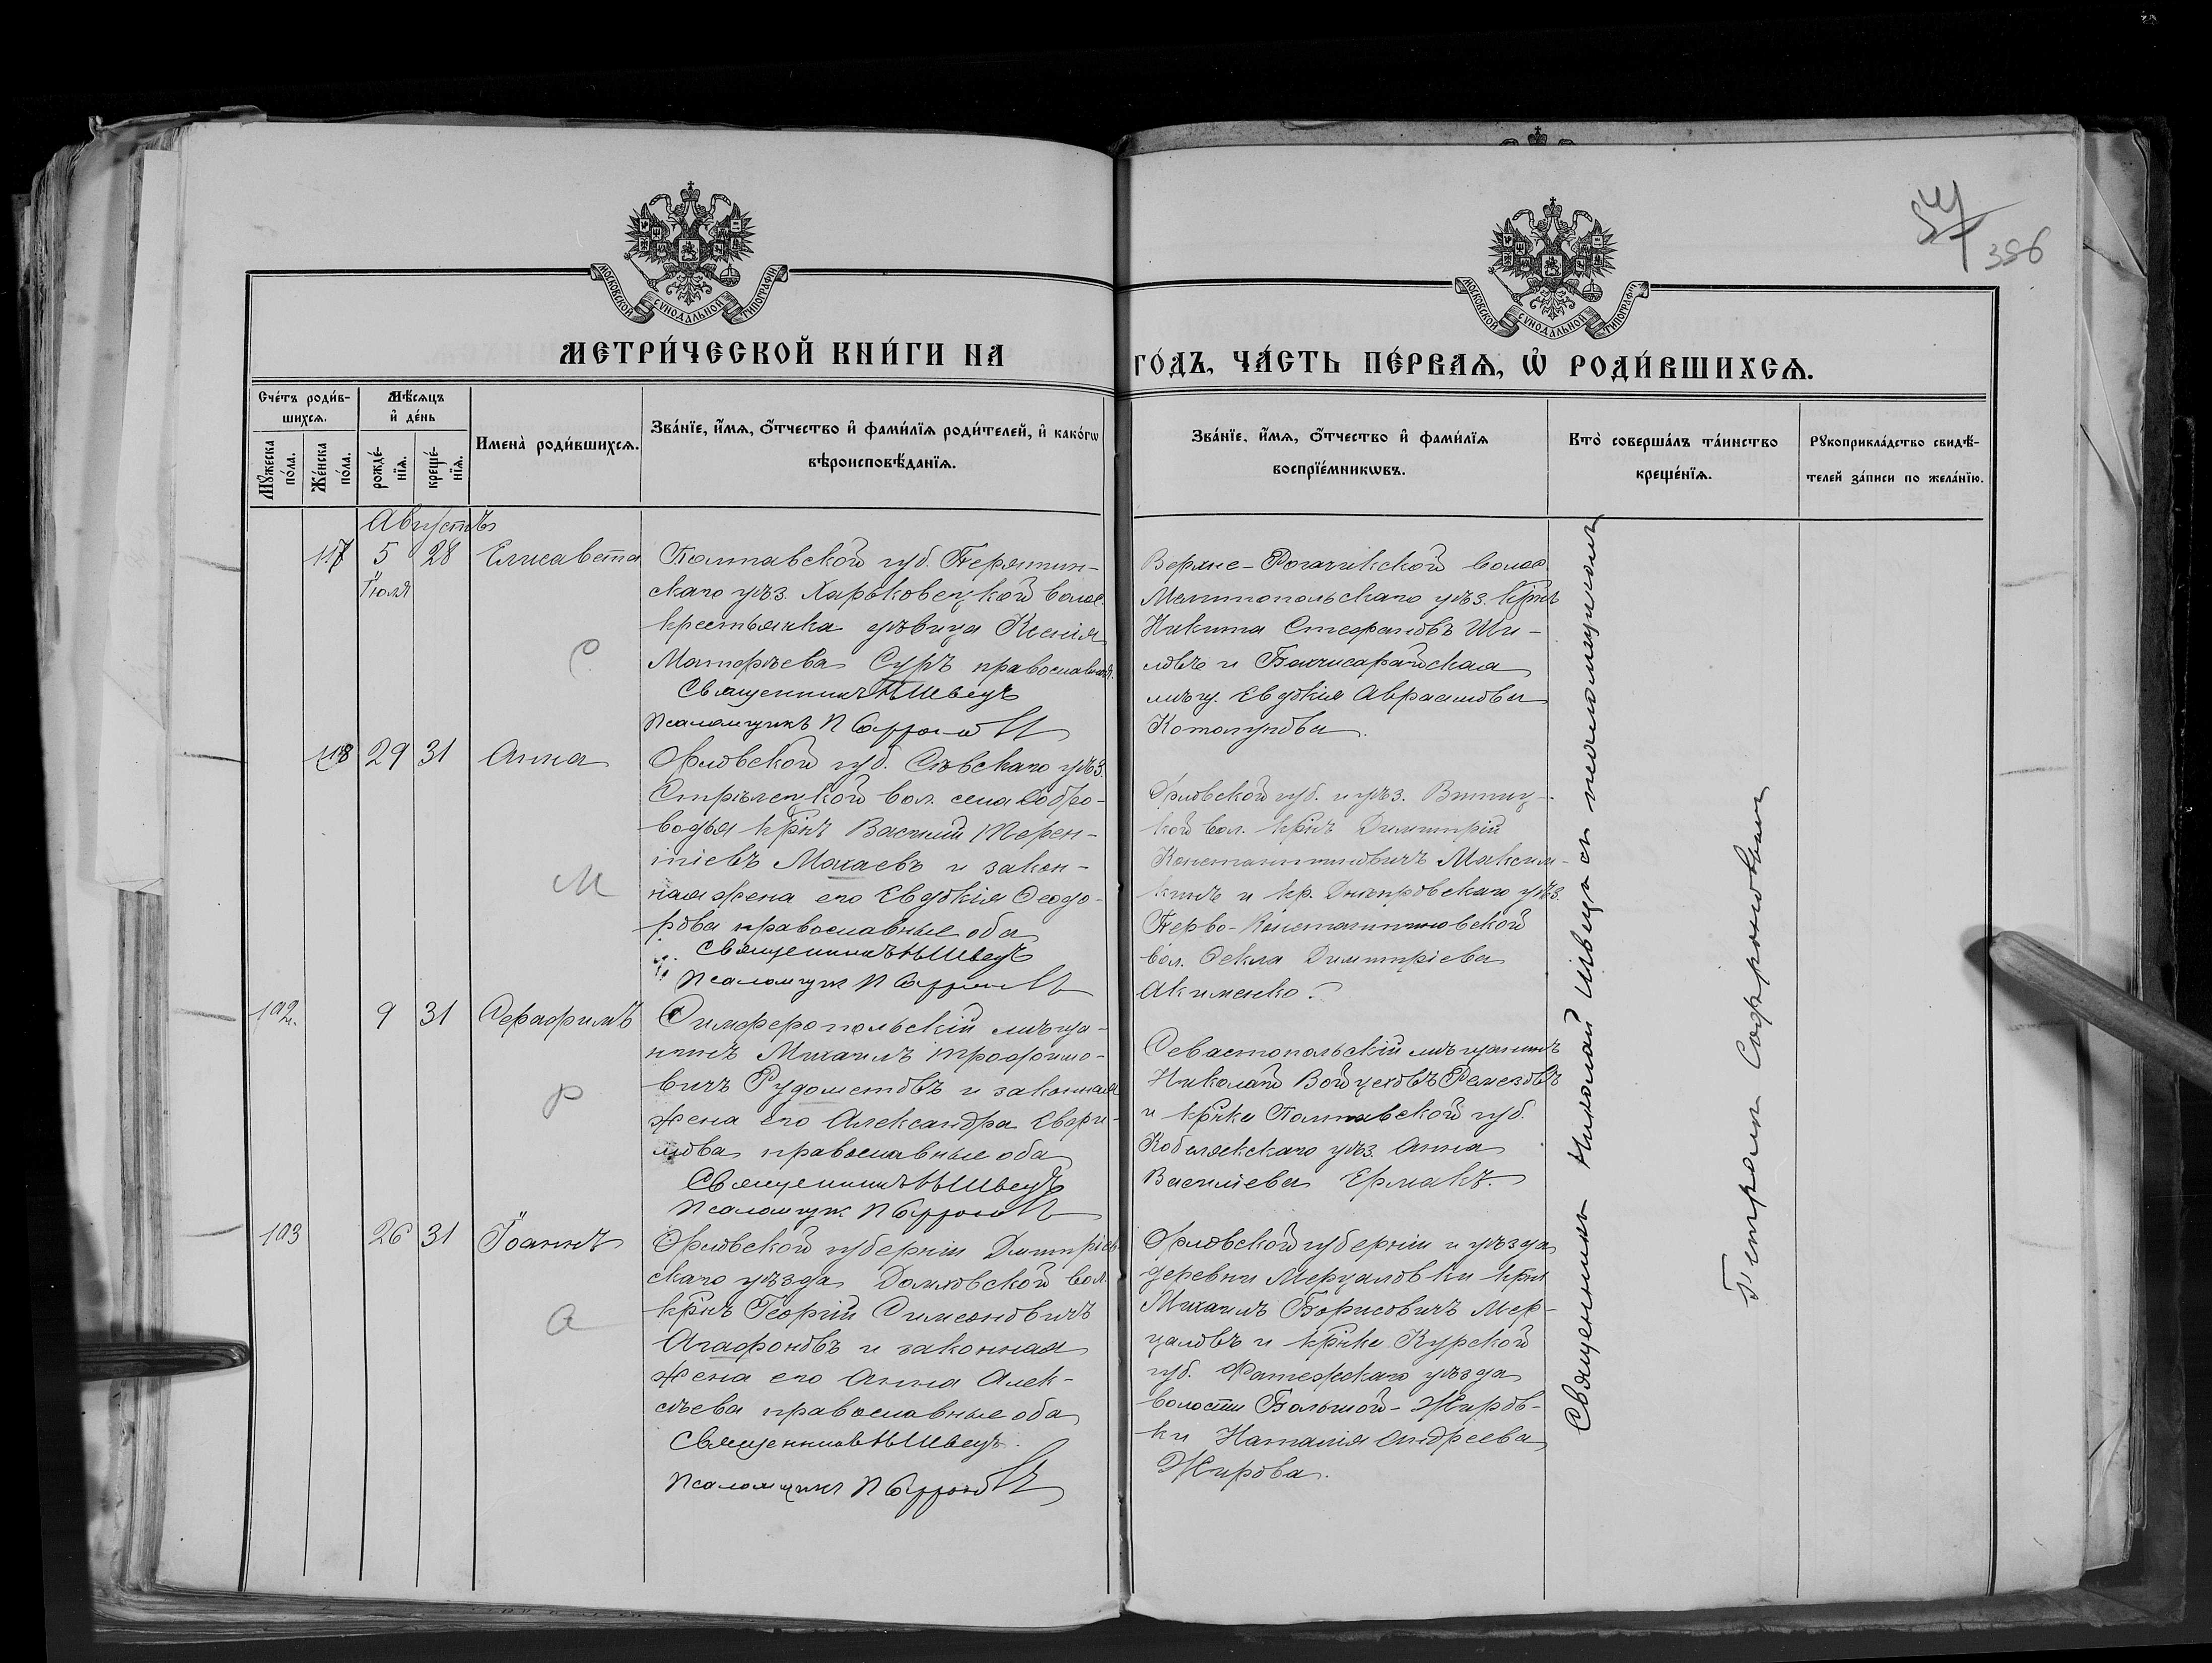 54
356
МОСКОВСКОЙ СѴНОДАЛЬНОЙ ТИПОГРАФІИ
МОСКОВСКОЙ СѴНОДАЛЬНОЙ ТИПОГРАФІИ
МЕТРИ́ЧЕСКОЙ КНИ́ГИ НА
ГО́ДЪ, ЧА́СТЬ ПЕ́РВАѦ, Ѡ҆ РОДИ́ВШИХСѦ.
Сче́тъ роди́в-
шихсѧ.
Мꙋ́жеска по́ла.
Же́нска по́ла.
Мѣ́сѧцъ
и҆ де́нь
рожде́-нїѧ.
креще́-нїѧ.
Имена̀ роди́вшихсѧ.
Зва́нїе, и҆́мѧ, ѻ҆́тчество и҆ фами́лїѧ роди́телей, и҆ како́гѡ
вѣроисповѣ́данїѧ.
Зва́нїе, и҆́мѧ, ѻ҆́тчество и҆ фами́лїѧ
воспрїе́мникѡвъ.
Кто̀ соверша́лъ та́инство
креще́нїѧ.
Рꙋкоприкла́дство свидѣ́-
телей за́писи по жела́нїю.
Августъ
117 5 28 Елисавета
Іюля
С
Полтавской губ. Пирятин-
скаго уѣз. Харьковецкой волос.
крестьянка дѣвица Ксенія
Матфѣева Суръ православная.
Священникъ Н Швецъ
Псаломщикъ П Софроновъ
Верхне-Рогачикской волос.
Мелитопольскаго уѣз. крнъ
Никита Стефановъ Ши-
ловъ и Бахчисарайская
мѣщ. Евдокія Авраамова
118 29 31 Анна
М
Орловской губ. Сѣвскаго уѣз.
Стрѣлецкой вол. села Добро-
водья крнъ Василій Терен-
тіевъ Махаевъ и закон-
ная жена его Евдокія Ѳеодо-
рова православные оба
Священникъ Н Швецъ
Псаломщик П Софроновъ
Орловской губ. и уѣз.
кой вол. крнъ Димитрій
Константиновичъ Максим-
кинъ и кр. Днѣпровскаго уѣз.
Перво-Константиновской
вол. Ѳекла Димитріева
Акименко.
192. 9 31 Серафимъ
Р
Симферопольскій мѣща-
нинъ Михаилъ Трофимо-
вичъ Рудометовъ и законная
жена его Александра
православные оба
Священникъ Н Швецъ
Псаломщик П Софроновъ
Севастопольскій мѣщанинъ
Николай Войцеховъ Ремезовъ
и крнка Полтавской губ.
Кобелякскаго уѣз. Анна
Василіева Ермакъ.
193 26 31 Іоаннъ
А
Орловской губерніи Дмитріев-
скаго уѣзда Домховской вол.
крнъ Георгій Симеоновичъ
Агафоновъ и законная
жена его Анна Алек-
сѣева православные оба
Священникъ Н Швецъ.
Псаломщикъ П Софроновъ
Орловской губерніи и уѣзда
деревни Мерцаловки крнъ
Михаилъ Борисовичъ Мер-
цаловъ и крнка Курской
губ. Фатежскаго уѣзда
волости Большой-Жиров-
ки Наталія Андреева
Жирова.
Священникъ Николай Швецъ съ псаломщикомъ
Петромъ Софроновымъ